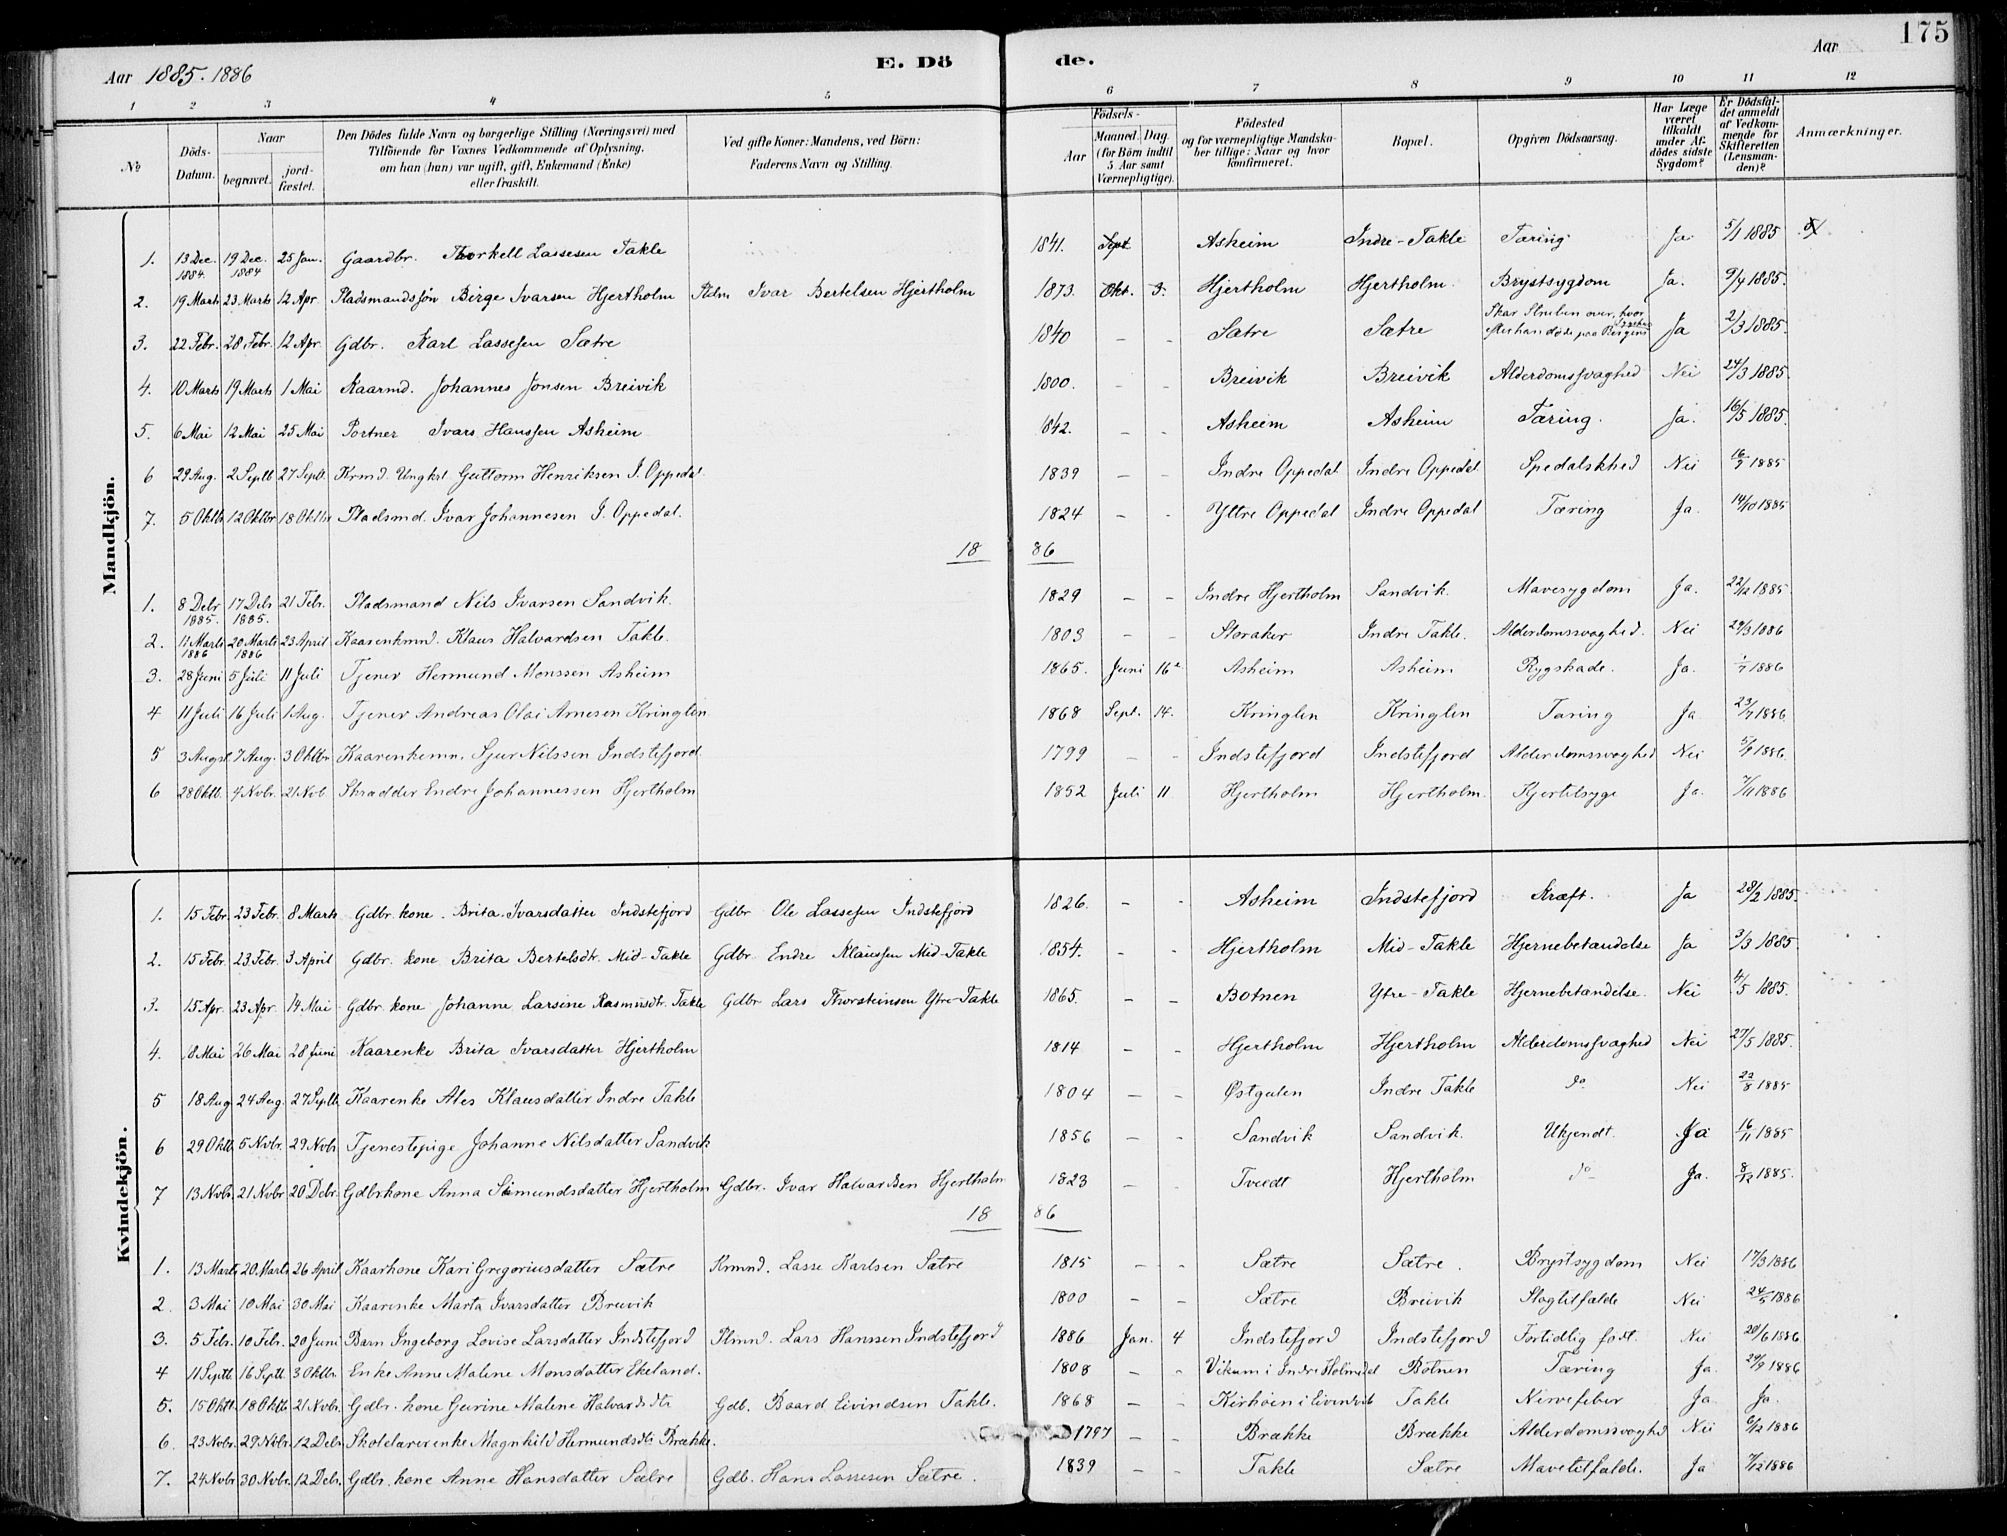 175
Aar 1885. 1886 E. Dö de. Aar
1 2 3 4 5 6 7 8 9 10 11 12
No
Döds-Datum.
Naar begravet. jordfæstet.
Den Dödes fulde Navn og borgerlige Stilling (Næringsvei) med Tilföiende for Voxnes Vedkommende af Oplysning, om han (hun) var ugift, gift, Enkemand (Enke) eller fraskilt.
Ved gifte Koner: Mandens, ved Börn: Faderens Navn og Stilling.
Födsels- Aar Maaned. Dag. (for Börn indtil 5 Aar samt Værnepligtige).
Födested og for værnepligtige Mandskaber tillige: Naar og hvor konfirmeret.
Bopæl.
Opgiven Dödsaarsag.
Har Læge været tilkaldt under Afdödes sidste Sygdom?
Er Dödsfaldet anmeldt af Vedkommende for Skifteretten (Lensmanden)?
Anmærkninger.
Mandkjön.
1. 13 Dec. 1884. 19 Dec. 1884 25 Jan. Gaardbr. Thorkell Lassesen Takle 1841. Sept Asheim Indre-Takle Tæring Ja 5/1 1885
2. 19 Marts 23 Marts 12 Apr. Pladsmandssøn Birge Ivarsen Hjertholm Pldm Ivar Bertelsen Hjertholm 1873. Okt. 3. Hjertholm Hjertholm. Brystsygdom Ja. 9/4 1885.
3. 22 Febr. 28 Febr. 12 Apr. Gdbr. Karl Lassesen Sætre 1840 - - Sætre Sætre Skar Struben over, hvorefter han døde paa Bergens Sygehus Ja 2/3 1885.
4. 10 Marts 19 Marts 1 Mai Kaarmd. Johannes Jonsen Breivik 1800. - - Breivik Breivik Alderdomssvaghed Nei 24/3 1885.
5. 6 Mai 12 Mai 25 Mai Portner Ivar Hanssen Asheim 1842. - - Asheim Asheim Tæring. Ja. 16/5 1885.
6 29 Aug. 2 Septb 27 Septb. Krmd. Ungkrl Guttorm Henriksen I. Oppedal. 1839 - - Indre Oppedal Indre Oppedal Spedalskhed Nei 16/9 1885
7. 5 Oktbr 12 Oktbr 18 Oktbr Pladsmd. Ivar Johannesen I. Oppedal. 1824 - - Yttre Oppedal Indre Oppedal Tæring Ja. 14/10 1885
18 86
1. 8 Debr 1885. 17 Debr 1885. 21 Febr. Pladsmand Nils Ivarsen Sandvik. 1829 - - Indre Hjertholm Sandvik. Mavesygdom Ja. 22/12 1885.
2. 11 Marts 1886 20 Marts 1886 23 April Kaarenkmnd. Klaus Halvardsen Takle. 1803 - - Storaker Indre Takle. Alderdomssvaghed. Nei 29/3 1886
3. 28 Juni 5 Juli 11 Juli Tjener Hermund Monssen Asheim 1865. Juni 16 Asheim Asheim Rygskade. Ja. 1/7 1886
4 11 Juli 16 Juli 1 Aug. Tjener Andreas Olai Arnesen Kringlen 1868 Sept. 14. Kringlen Kringlen Tæring Ja 23/7 1886
5 3 Augst 7 Aug. 3 Oktbr Kaarenkemn. Sjur Nilssen Indstefjord. 1799 - - Indstefjord Indstefjord Alderdomssvaghed Nei 5/9 1886.
6 28 Oktb. 4 Novbr. 21 Nvb Skrædder Endre Johannessen Hjertholm 1852 Juli 11 Hjertholm Hjertholm. Kjertelsyge Ja. 7/11 1886
Kvindekjön.
1. 15 Febr. 23 Febr. 8 Marts Gdbr. kone. Brita Ivarsdatter Indstefjord Gdbr Ole Lassesen Indstefjord 1826. - - Asheim Indstefjord Kræft. Ja 28/2 1885.
2. 15 Febr. 23 Febr. 3 April Gdbr. kone Brita Bertelsdtr. Mid-Takle Gdbr. Endre Klaussen Mid-Takle 1854. - - Hjertholm Mid-Takle Hjernebetændelse Ja 3/3 1885.
3. 15 Apr. 23 Apr. 14 Mai Gdbr. kone Johanne Larsine Rasmusdt. Takle Gdbr Lars Thorsteinsen Ytre-Takle 1865. - - Botnen Ytre-Takle Hjernebetændelse. Nei 4/5 1885.
4. 18 Mai 26 Mai 28 Juni Kaarenke Brita Ivarsdatter Hjertholm 1814 - - Hjertholm Hjertholm Alderdomssvaghed Nei 27/5 1885.
5 18 Aug 24 Aug. 27 Septb. Kaarenke Ales Klausdatter Indre Takle 1804 - - Østgulen Indre Takle do Nei 22/8 1885
6 29 Oktb 5 Nvbr. 29 Nvbr. Tjenestepige Johanne Nilsdatter Sandvik 1856 - - Sandvik Sandvik. Ukjendt. Ja 16/11 1885
7 13 Nvbr. 21 Nvbr 20 Debr. Gdbrkone Anna Simundsdatter Hjertholm Gdbr. Ivar Halvardsen Hjertholm 1823 - - Tveedt Hjertholm do Ja. 8/12 1885.
18 86
1. 13 Marts 20 Marts 26 April Kaarkone Kari Gregoriusdatter Sætre Krmnd. Lasse Karlsen Sætre 1815 - - Sætre Sætre. Brystsygdom Nei 17/3 1886
2. 3 Mai 10 Mai 30 Mai Kaarenke Marta Ivarsdatter Breivik 1800 - - Sætre Breivik Slagtilfælde Nei 24/5 1886
3. 5 Febr. 10 Febr. 20 Juni Barn Ingeborg Lovise Larsdatter Indstefjord Plmnd. Lars Hanssen Indstefjord 1886 Jan. 4 Indstefjord Indstefjord Fortidlig født. Nei 20/6 1886
4 11 Septb 16 Septb. 3 Oktbr. Enke Anne Malene Monsdatter Ekeland. 1808 - - Vikum i Indre Holmedal Botnen Tæring Ja. 24/9 1886
5. 15 Oktb. 18 Oktb 21 Nvbr. Gdbr. kone Gurine Malene Halvardsdtr Gdb. Baard Eivindsen Takle. 1868 - - Kirhøien i Eivindvik Takle Nervefeber Ja. Ja.
6. 23 Nvbr. 29 Nvbr. 12 Debr Skolelærerenke Magnhild Hermundsdtr Brække. 1797 - - Brække Brække Alderdomssvaghed Nei 6/12 1886
7. 24 Nvbr 30 Nvbr. 12 Debr. Gdbr. kone Anne Hansdatter Sætre Gdb. Hans Lassesen Sætre. 1839 - - Takle Sætre Mavetilfælde. Ja 7/12 1886